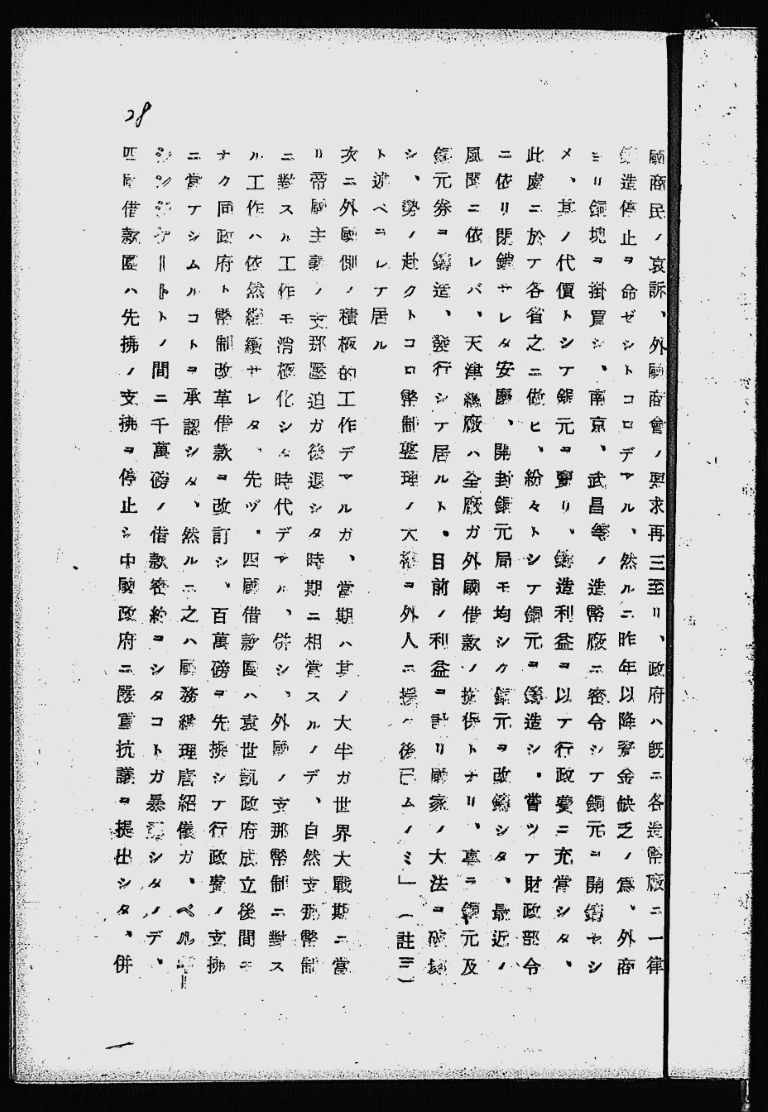 28
國商民ノ哀訴、外國商會ノ要求再三至リ、政府ハ既ニ各造幣廠ニ一律
鑄造停止ヲ命ゼシトコロデアル、然ルニ昨年以降資金缺乏ノ爲、外商
ヨリ銅塊ヲ掛買シ、南京、武昌等ノ造幣廠ニ密令シテ銅元ヲ開鑄セシ
メ、其ノ代價トシテ銅元ヲ賣リ、鑄造利益ヲ以テ行政費ニ充當シタ、
此處ニ於テ各省之ニ倣ヒ、紛々トシテ銅元ヲ鑄造シ、嘗ツテ財政部令
ニ依リ閉鎖サレタ安慶、開封銅元局モ均シク銅元ヲ改鑄シタ、最近ノ
風聞ニ依レバ、天津總廠ハ全廠ガ外國借款ノ擔保トナリ、專ラ銅元及
銅元券ヲ鑄造、發行シテ居ルト、目前ノ利益ヲ計リ國家ノ大法ヲ破壞
シ、勢ノ赴クトコロ幣制整理ノ大權ヲ外人ニ授ケ後已ムノミ」(註三)
ト述ベラレテ居ル
次ニ外國側ノ積極的工作デアルガ、當期ハ其ノ大半ガ世界大戰期ニ當
リ帝國主義ノ支那壓迫ガ後退シタ時期ニ相當スルノデ、自然支那幣制
ニ對スル工作モ消極化シタ時代デアル、併シ、外國ノ支那幣制ニ對ス
ル工作ハ依然繼續サレタ、先ヅ、四國借款團ハ袁世凱政府成立後間モ
ナク同政府ト幣制改革借款ヲ改訂シ、百萬磅ヲ先拂シテ行政費ノ支拂
ニ當テシムルコトヲ承認シタ、然ルニ之ハ國務總理唐紹儀ガ、ベルギー
シンジケートトノ間ニ千萬磅ノ借款密約ヲシタコトガ暴露シタノデ、
四國借款團ハ先拂ノ支拂ヲ停止シ中國政府ニ嚴重抗議ヲ提出シタ、併